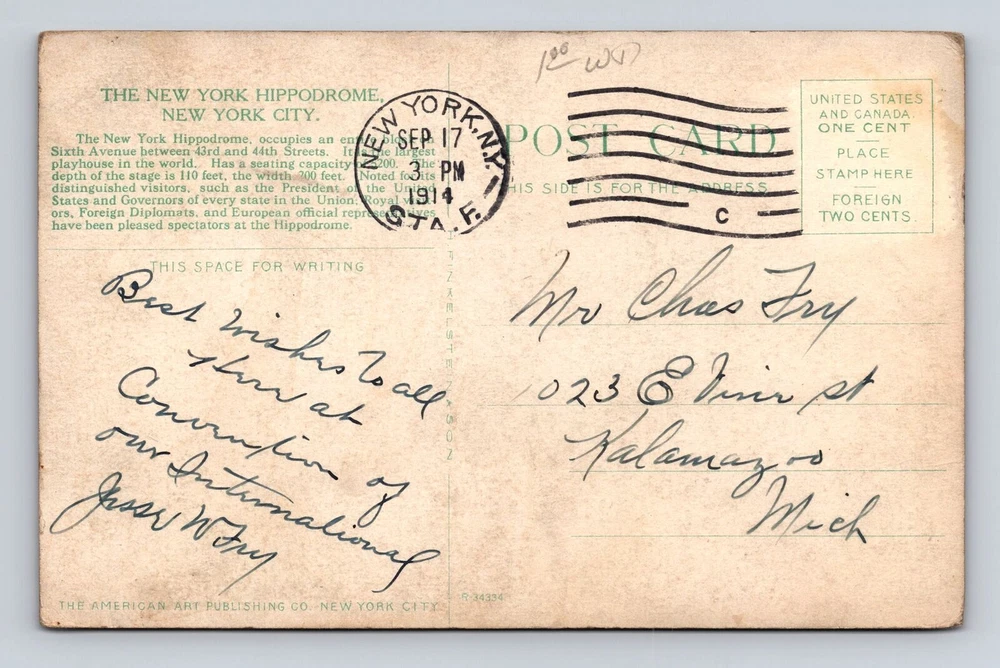 1.00 WD
THE NEW YORK HIPPODROME,
NEW YORK CITY.
The New York Hippodrome, occupies an
Sixth Avenue between 43rd and 44th Streets. It largest
playhouse in the world. Has a seating capacity 5200. The
depth of the stage is 110 feet, the width 200 feet. Noted for its
distinguished visitors, such as the President of the United
States and Governors of every state in the Union, Royal
ors, Foreign Diplomats, and European official representatives
have been pleased spectators at the Hippodrome.
NEW YORK, N.Y.
SEP 17
3 PM
1914
STA. F.
C
POST CARD
THIS SIDE IS FOR THE ADDRESS
UNITED STATES
AND CANADA
ONE CENT
PLACE
STAMP HERE
FOREIGN
TWO CENTS.
THIS SPACE FOR WRITING
Best Wishes To all
Here at
Convention of
our International
Jesse W Fry
Mr Chas Fry
1023 E Vine st
Kalamazoo
Mich
THE AMERICAN ART PUBLISHING CO. NEW YORK CITY
R-34334